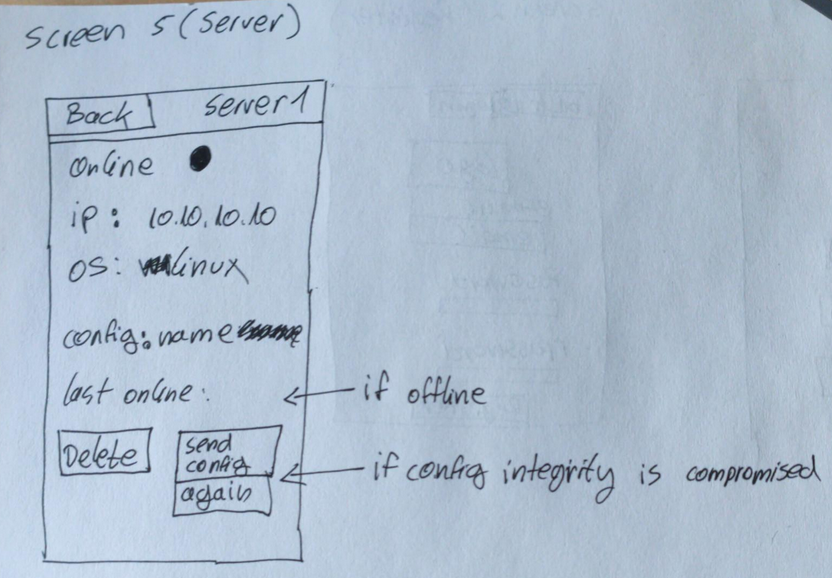 Screen 5 (Server)
Back
Server1
Online
ip: 10.10.10.10
OS: linux
config: name
last online:
if offline
Delete
send
config
again
if config integrity is compromised